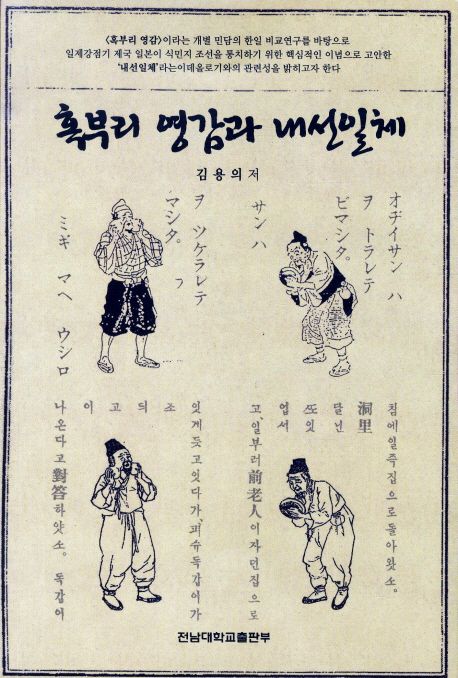 〈혹부리 영감〉이라는 개별 민담의 한일 비교연구를 바탕으로
일제강점기 제국 일본이 식민지 조선을 통치하기 위한 핵심적인 이념으로 고안한
'내선일체'라는이데올로기와의 관련성을 밝히고자 한다
혹부리 영감과 내선일체
김용의 저
オヂイサン ハ
ヲ トラレテ
ビマシタ。
サン ハ
ヲ ツケラレテ
マシタ。 フ
ミギ マヘ ウシロ
침에일즉집으로돌아왓소。
洞里
달닌
ᄯᅩ잇
업서
고、일부러前老人이자던집으로
잇게듯고잇다가、
조
듸
고
이
나온다고對答하얏소。 독갑이
전남대학교출판부